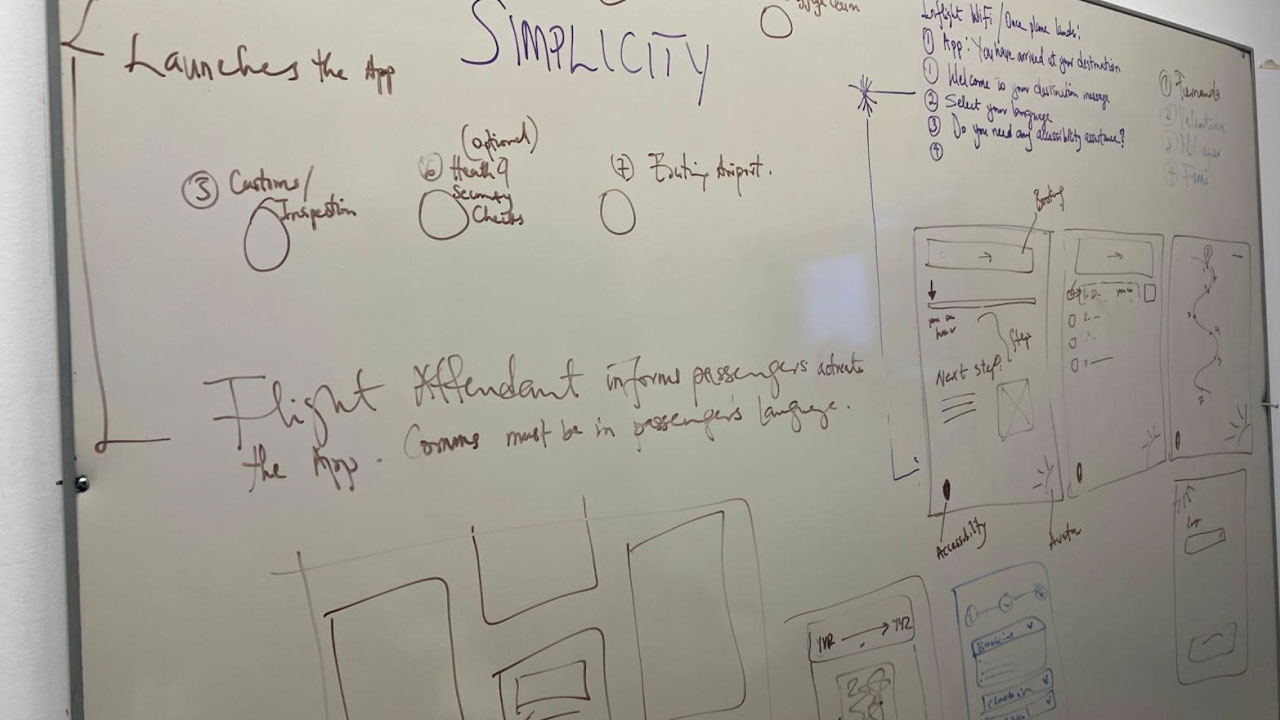 SIMPLICITY
Launches the App
Inflight WiFi / Once plane lands:
① App: You have arrived at your destination
① Welcome to your destination message
② Select your language
③ Do you need any accessibility assistance?
④
① Fernanda
② Valentina
③
④
⑤ Customs/
Inspection
(optional)
⑥ Health &
Security
Checks
⑦ Exiting Airport.
Flight Attendant informs passengers activate
the App. Comms must be in passenger's language.
you are
here
Step
Next step:
Accessibility
Avatar
YVR → YYZ
Check in